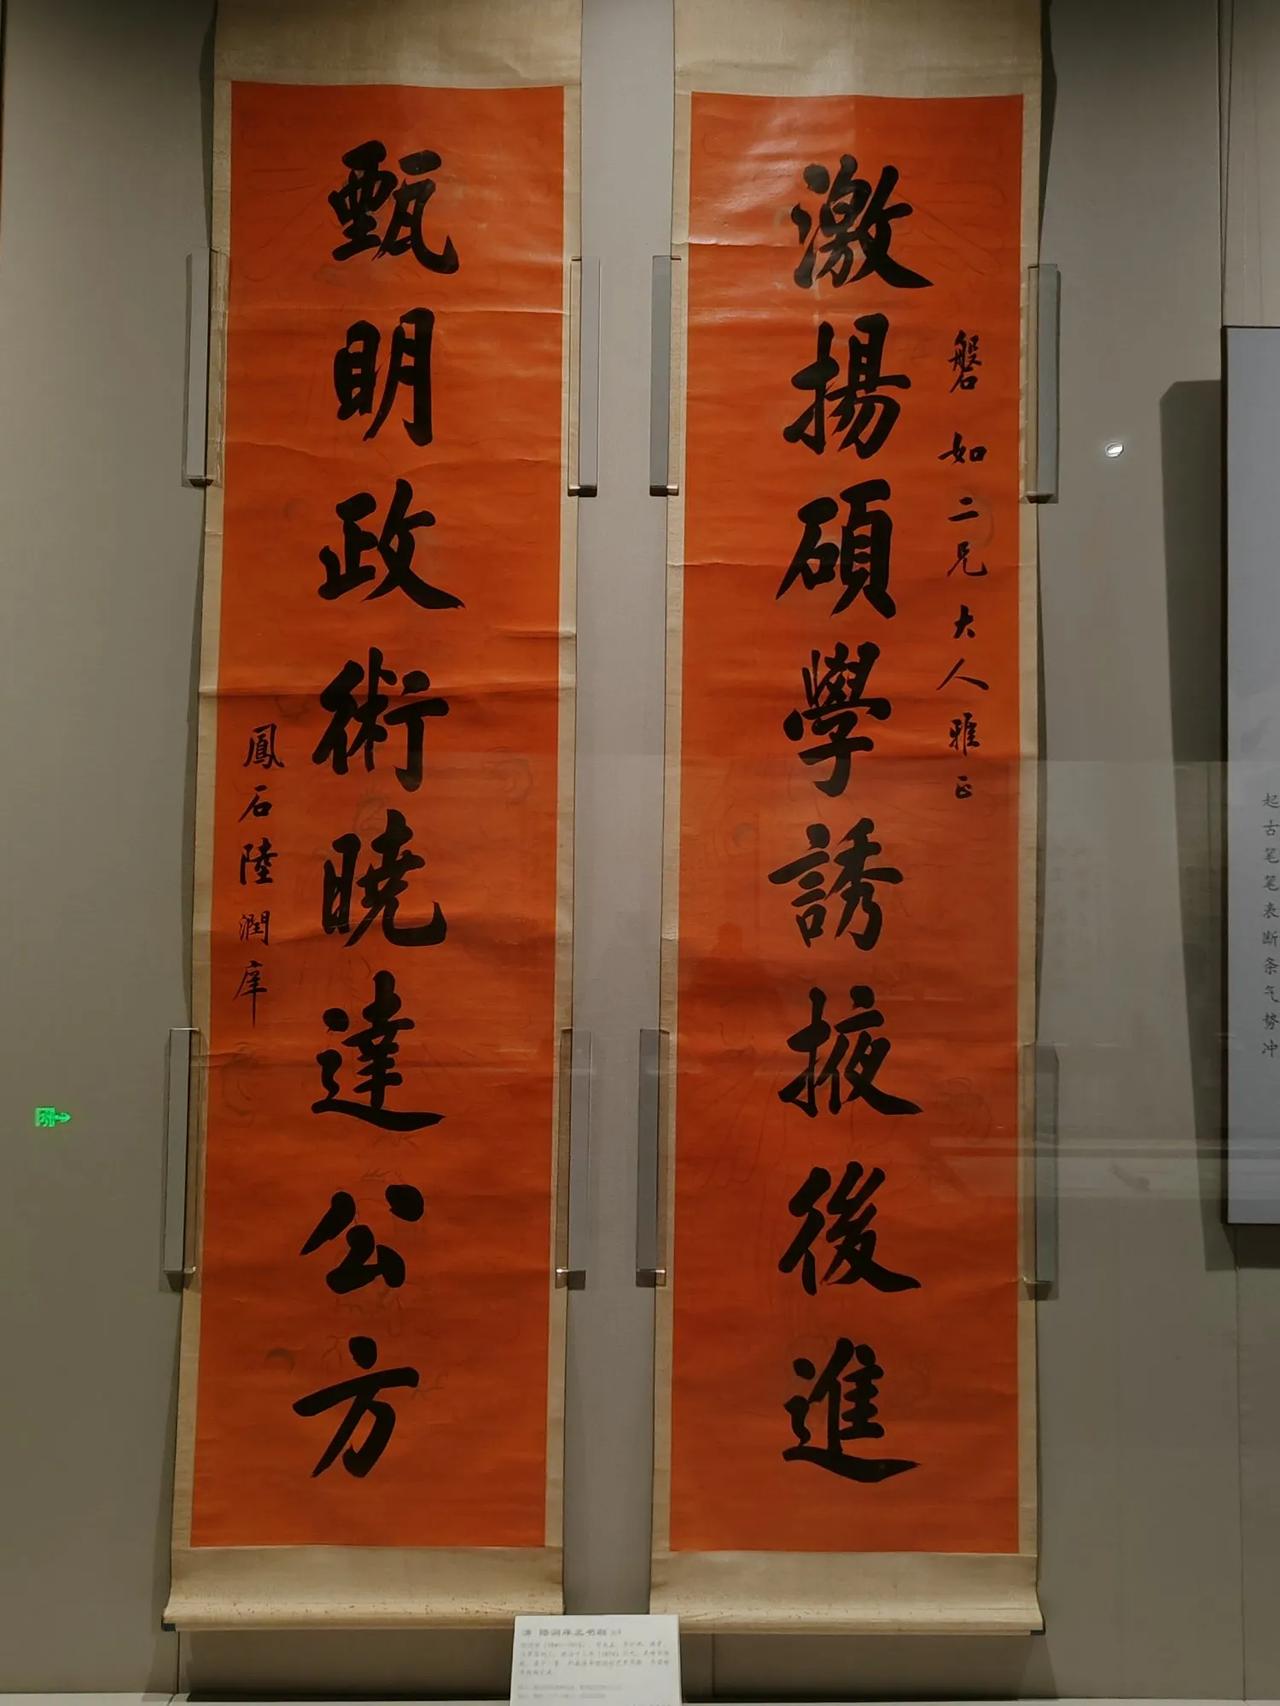 磐如二兄大人雅正
激揚碩學誘掖後進
甄明政術曉達公方
鳳石陸潤庠
起古笔笔表断条气势冲
清 陆润庠